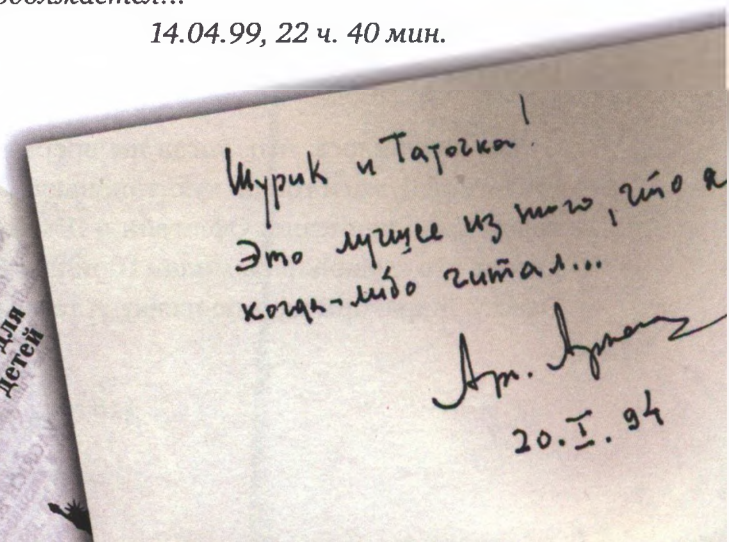 должается...
14.04.99, 22 ч. 40 мин.
Шурик и Таточка!
Это лучшее из того, что я
когда-либо читал...
Арк.
20.I.94
для
детей